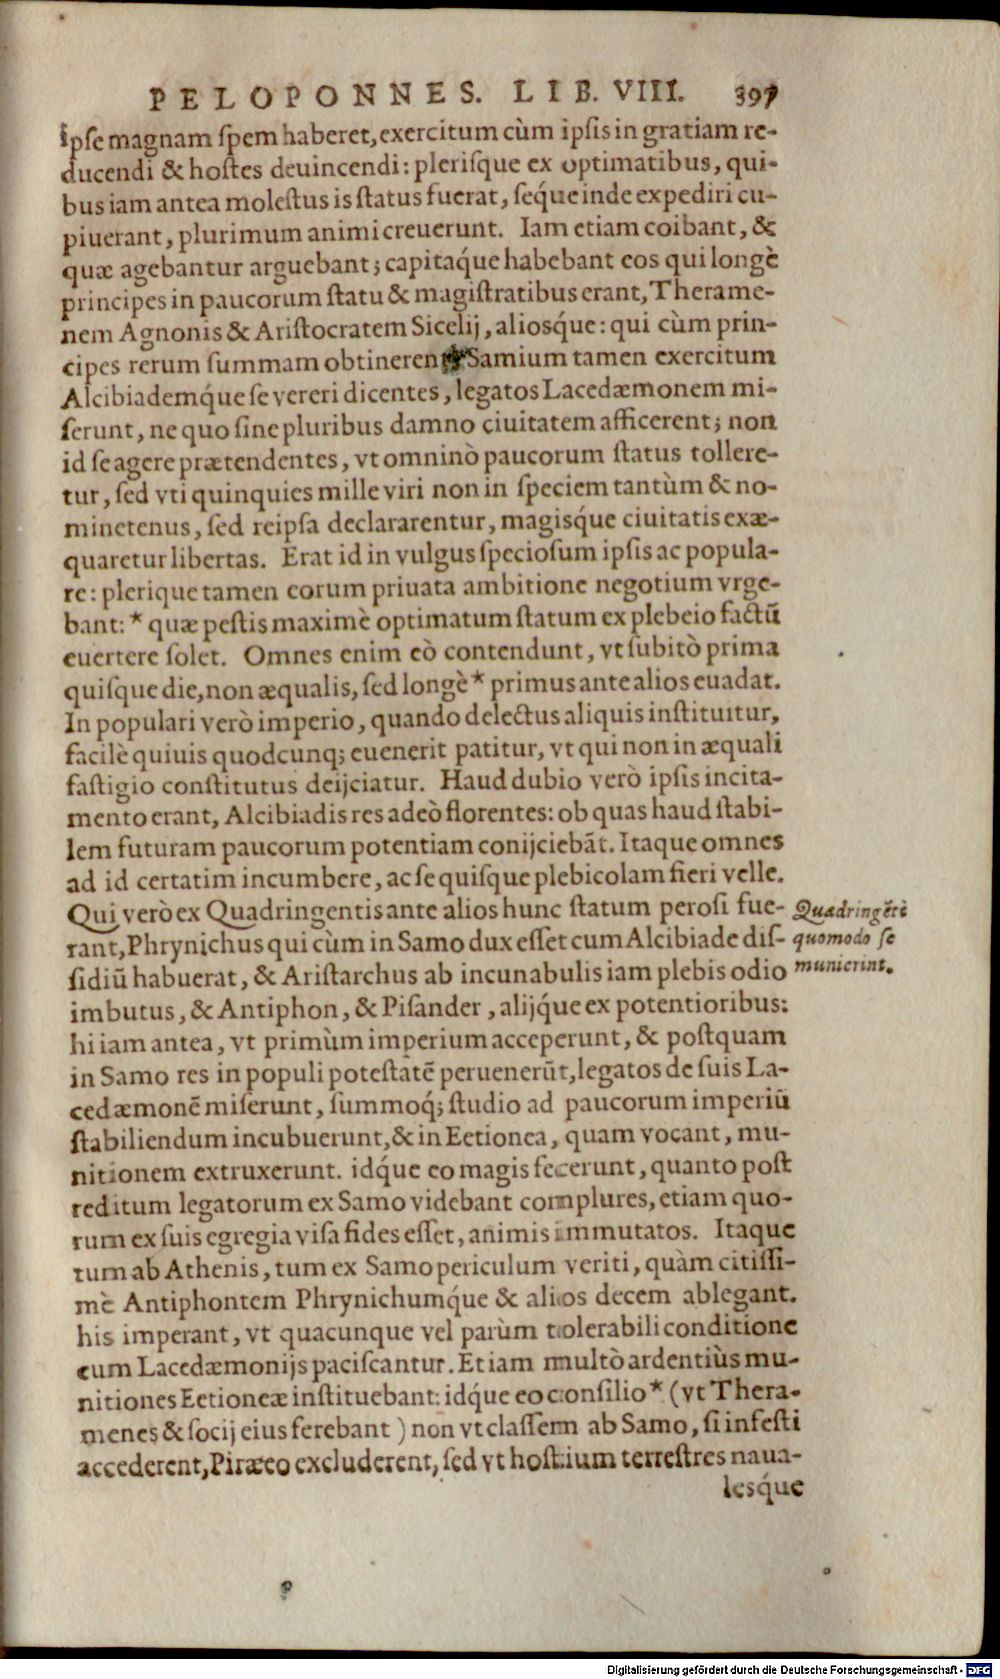 PELOPONNES. LIB. VIII. 397
ipſe magnam ſpem haberet, exercitum cùm ipſis in gratiam re-
ducendi & hoſtes deuincendi: pleriſque ex optimatibus, qui-
bus iam antea moleſtus is ſtatus fuerat, ſeq́ue inde expediri cu-
piuerant, plurimum animi creuerunt. Iam etiam coibant, &
quæ agebantur arguebant; capitaq́ue habebant eos qui longè
principes in paucorum ſtatu & magiſtratibus erant, Therame-
nem Agnonis & Ariſtocratem Sicelij, alioſq́ue: qui cùm prin-
cipes rerum ſummam obtinerent, Samium tamen exercitum
Alcibiademq́ue ſe vereri dicentes, legatos Lacedæmonem mi-
ſerunt, ne quo ſine pluribus damno ciuitatem afficerent; non
id ſe agere prætendentes, vt omninò paucorum ſtatus tollere-
tur, ſed vti quinquies mille viri non in ſpeciem tantùm & no-
minetenus, ſed reipſa declararentur, magiſq́ue ciuitatis exæ-
quaretur libertas. Erat id in vulgus ſpecioſum ipſis ac popula-
re: plerique tamen eorum priuata ambitione negotium vrge-
bant: * quæ peſtis maximè optimatum ſtatum ex plebeio factū
euertere ſolet. Omnes enim eò contendunt, vt ſubitò prima
quiſque die, non æqualis, ſed longè * primus ante alios euadat.
In populari verò imperio, quando delectus aliquis inſtituitur,
facilè quiuis quodcunq; euenerit patitur, vt qui non in æquali
faſtigio conſtitutus deijciatur. Haud dubio verò ipſis incita-
mento erant, Alcibiadis res adeò florentes: ob quas haud ſtabi-
lem futuram paucorum potentiam conijciebāt. Itaque omnes
ad id certatim incumbere, ac ſe quiſque plebicolam fieri velle.
Qui verò ex Quadringentis ante alios hunc ſtatum peroſi fue-
rant, Phrynichus qui cùm in Samo dux eſſet cum Alcibiade diſ-
ſidiū habuerat, & Ariſtarchus ab incunabulis iam plebis odio
imbutus, & Antiphon, & Piſander, alijq́ue ex potentioribus:
hi iam antea, vt primùm imperium acceperunt, & poſtquam
in Samo res in populi poteſtatē peruenerūt, legatos de ſuis La-
cedæmonē miſerunt, ſummoq́; ſtudio ad paucorum imperiū
ſtabiliendum incubuerunt, & in Eetionea, quam vocant, mu-
nitionem extruxerunt. idq́ue eo magis fecerunt, quanto poſt
reditum legatorum ex Samo videbant complures, etiam quo-
rum ex ſuis egregia viſa fides eſſet, animis immutatos. Itaque
tum ab Athenis, tum ex Samo periculum veriti, quàm citiſſi-
mè Antiphontem Phrynichumq́ue & alios decem ablegant.
his imperant, vt quacunque vel parùm tolerabili conditione
cum Lacedæmonijs paciſcantur. Et iam multò ardentiùs mu-
nitiones Eetioneæ inſtituebant: idq́ue eo conſilio * (vt Thera-
menes & ſocij eius ferebant) non vt claſſem ab Samo, ſi infeſti
accederent, Piræeo excluderent, ſed vt hoſtium terreſtres naua-
leſq́ue
Quadringētè
quomodo ſe
munierint.
Digitalisierung gefördert durch die Deutsche Forschungsgemeinschaft - DFG